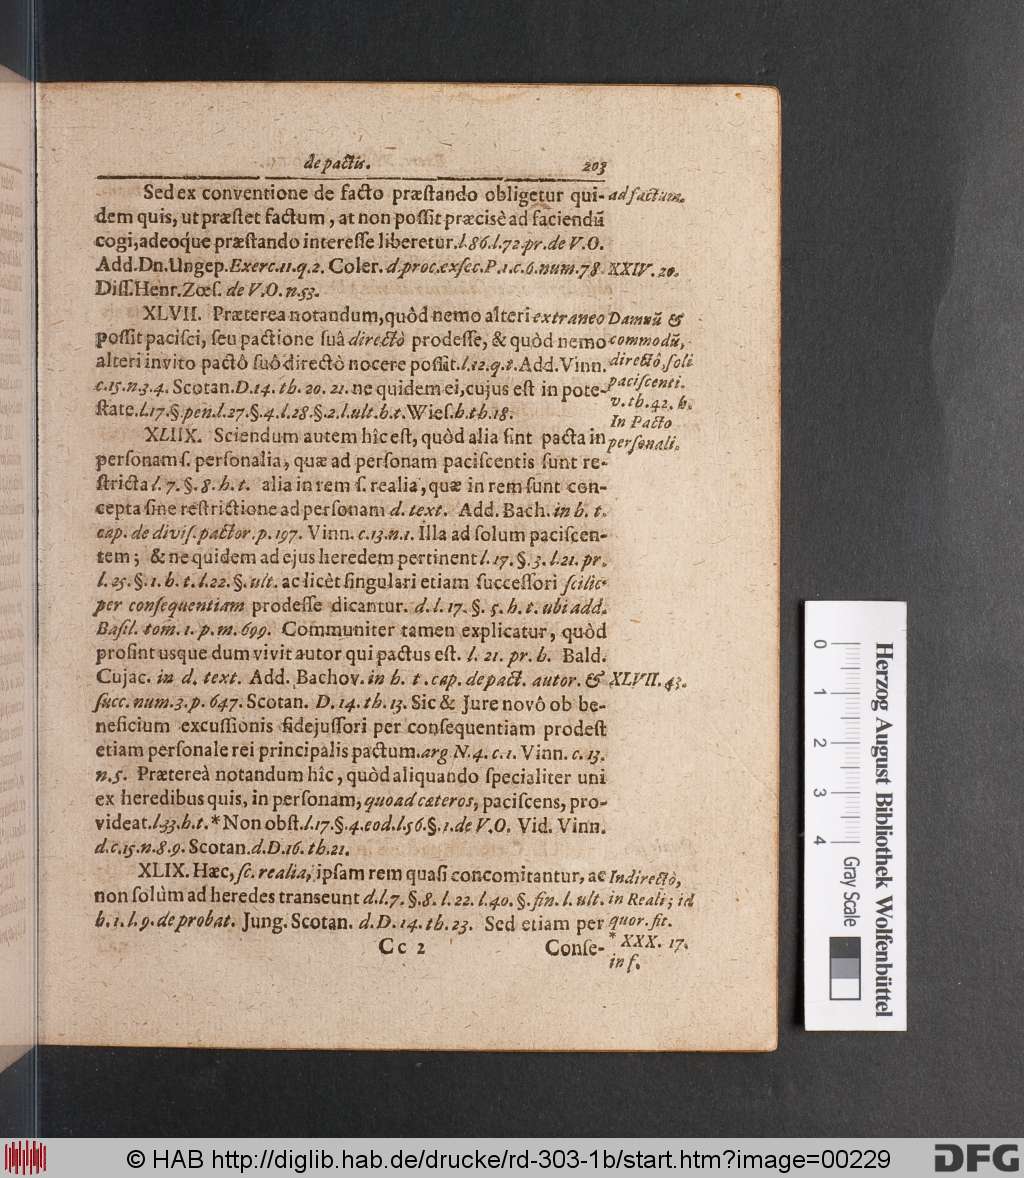 de pactis. 203
Sed ex conventione de facto præstando obligetur qui-
dem quis, ut præstet factum, at non possit præcisè ad faciendū
cogi, adeoque præstando interesse liberetur. l. 86. l. 72. pr. de V. O.
Add. Dn. Ungep. Exerc. 11. q. 2. Coler. d. proc. exsec. P. 1. c. 6. num. 78.
Diss. Henr. Zœs. de V. O. n. 53.
ad factum.
XXIV. 20.
XLVII. Præterea notandum, quôd nemo alteri extraneo
possit pacisci, seu pactione suâ directò prodesse, & quòd nemo
alteri invito pactô suô directò nocere possit. l. 12. q. t. Add. Vinn.
c. 15. n. 3. 4. Scotan. D. 14. th. 20. 21. ne quidem ei, cujus est in pote-
state. l. 17. §. pen. l. 27. §. 4. l. 28. §. 2. l. ult. h. t. Wies. h. th. 18.
Damnū &
commodū,
directò, soli
paciscenti.
v. th. 42. h.
XLIIX. Sciendum autem hîc est, quòd alia sint pacta in
personam s. personalia, quæ ad personam paciscentis sunt re-
stricta l. 7. §. 8. h. t. alia in rem s. realia, quæ in rem sunt con-
cepta sine restrictione ad personam d. text. Add. Bach. in h. t.
cap. de divis. pactor. p. 197. Vinn. c. 13. n. 1. Illa ad solum paciscen-
tem; & ne quidem ad ejus heredem pertinent l. 17. §. 3. l. 21. pr.
l. 25. §. 1. h. t. l. 22. §. ult. ac licèt singulari etiam successori scilic.
per consequentiam prodesse dicantur. d. l. 17. §. 5. h. t. ubi add.
Basil. tom. 1. p. m. 699. Communiter tamen explicatur, quòd
prosint usque dum vivit autor qui pactus est. l. 21. pr. h. Bald.
Cujac. in d. text. Add. Bachov. in h. t. cap. de pact. autor. &
succ. num. 3. p. 647. Scotan. D. 14. th. 13. Sic & Jure novô ob be-
neficium excussionis fidejussori per consequentiam prodest
etiam personale rei principalis pactum. arg N. 4. c. 1. Vinn. c. 13.
n. 5. Prætereà notandum hîc, quòd aliquando specialiter uni
ex heredibus quis, in personam, quoad cæteros, paciscens, pro-
videat. l. 33. h. t. * Non obst. l. 17. §. 4. eod. l. 56. §. 1. de V. O. Vid. Vinn.
d. c. 15. n. 8. 9. Scotan. d. D. 16. th. 21.
In Pacto
personali.
XLVII. 43.
XLIX. Hæc, sc. realia, ipsam rem quasi concomitantur, ac
non solùm ad heredes transeunt d. l. 7. §. 8. l. 22. l. 40. §. fin. l. ult.
h. 1. l. 9. de probat. Jung. Scotan. d. D. 14. th. 23. Sed etiam per
Indirectò,
in Reali; id
quor. fit.
* XXX. 17.
in f.
Cc 2 Conse-
0 1 2 3 4
Gray Scale
Herzog August Bibliothek Wolfenbüttel
© HAB http://diglib.hab.de/drucke/rd-303-1b/start.htm?image=00229
DFG